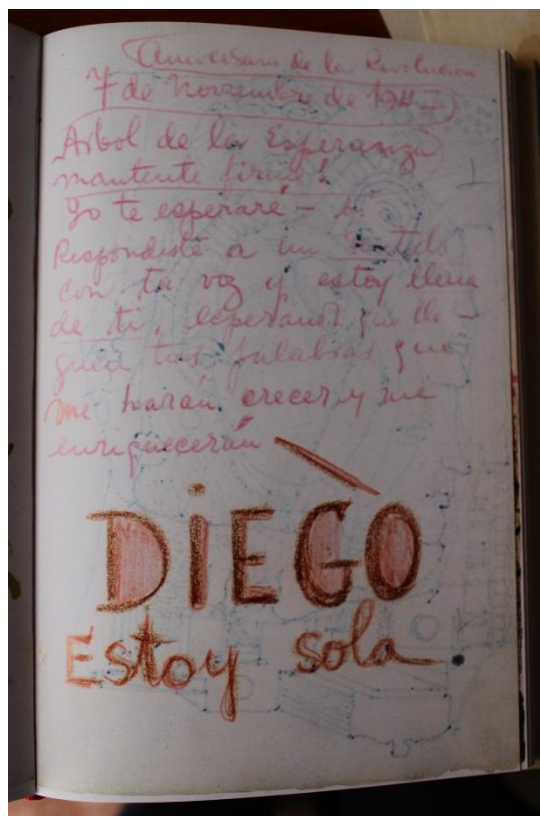 Aniversario de la Revolución
7 de Noviembre de 1947
Arbol de la Esperanza
mantente firme!
Yo te esperaré – b.
Respondiste a un sentido
con tu voz y estoy llena
de ti, esperando que lle-
guen tus palabras que
me harán crecer y me
enriquecerán
DIEGO
Estoy sola.